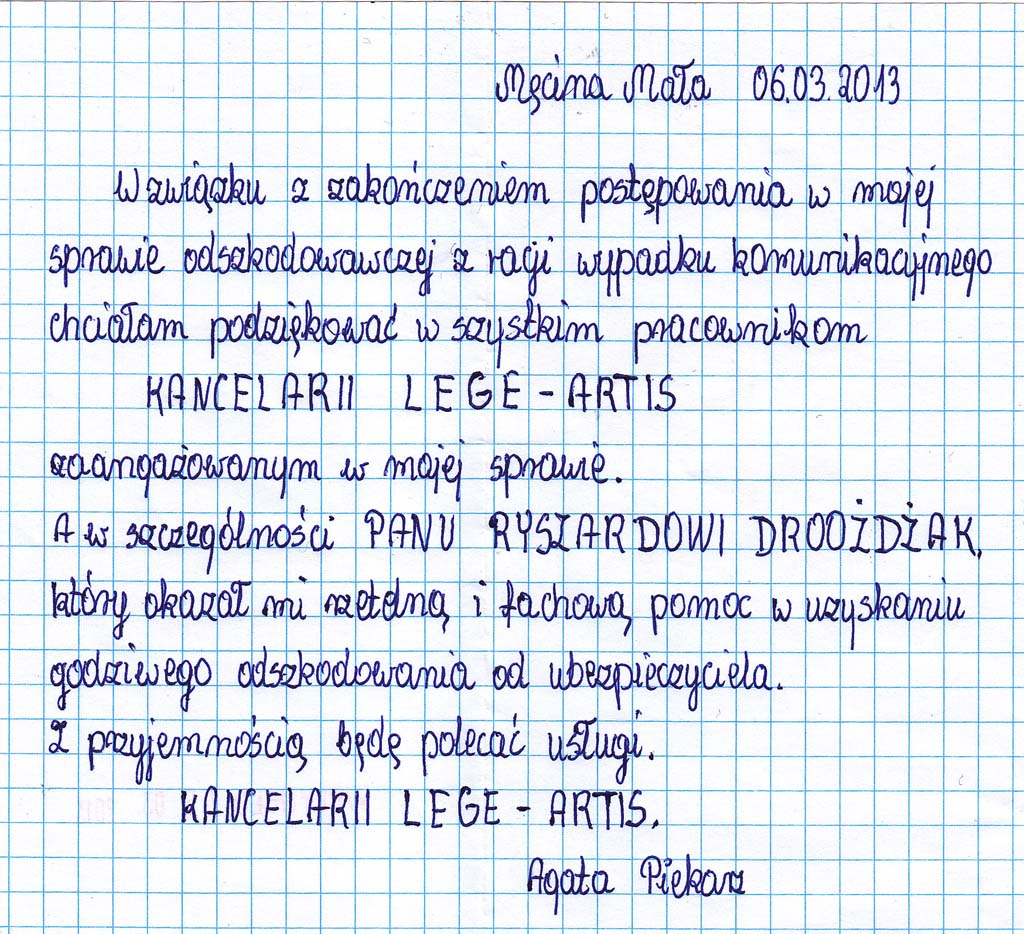 Męcina Mała 06.03.2013
W związku z zakończeniem postępowania w mojej
sprawie odszkodowawczej z racji wypadku komunikacyjnego
chciałam podziękować w szystkim pracownikom
KANCELARII LEGE - ARTIS
zaangażowanym w mojej sprawie.
A w szczególności PANU RYSZARDOWI DROOŻDŻAK,
który okazał mi rzetelną i fachową pomoc w uzyskaniu
godziwego odszkodowania od ubezpieczyciela.
Z przyjemnością będę polecać usługi.
KANCELARII LEGE - ARTIS.
Agata Piekarz